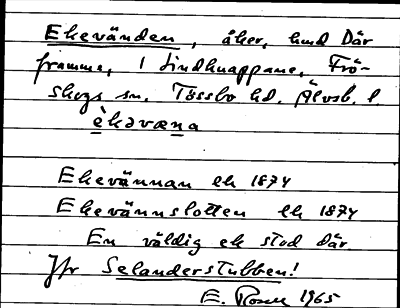 Ekevänden, åker, hmd Där
framme, i Lindknappane, Frö-
skogs sn. Tössbo hd. Älvsb. l.
èkəvæna
Ekevännan lh 1874
Ekevännslotten lh 1874
En väldig ek stod där
Jfr Selanderstubben!
E. Rosell 1965